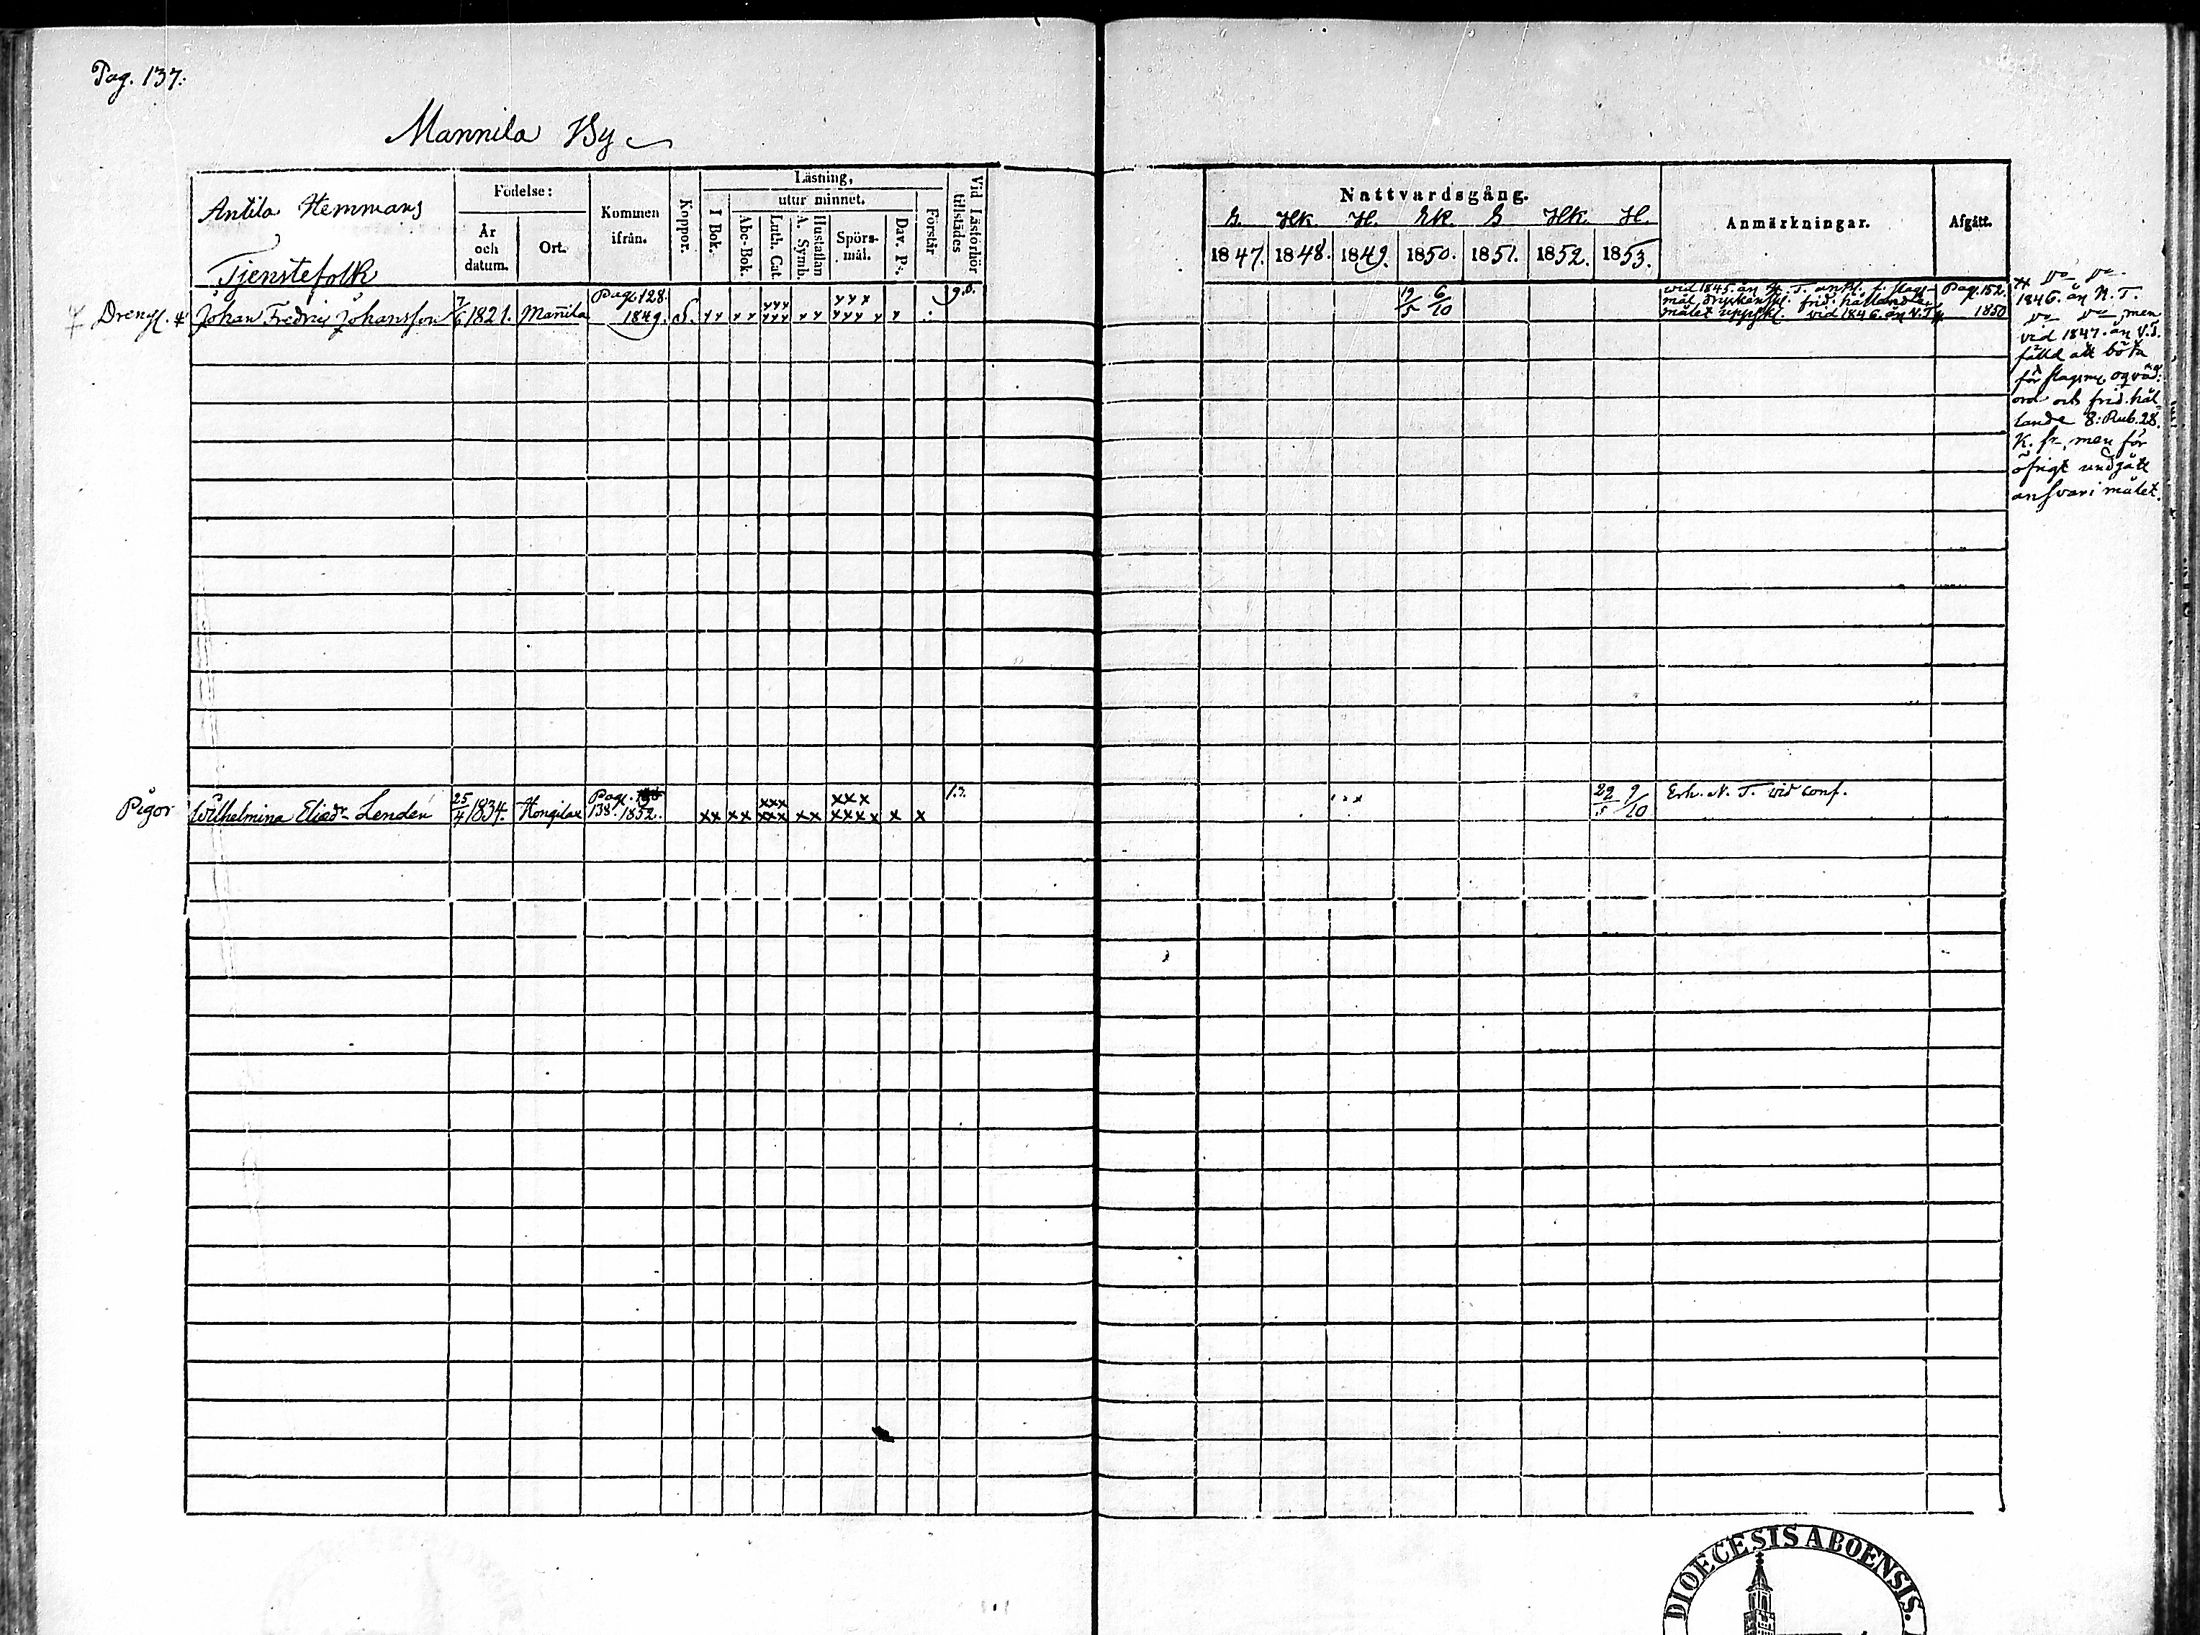 Pag. 137.
Mannila By
Antila Hemmans
Tjenstefolk
Födelse:
År och datum.
Ort.
Kommen ifrån.
Koppor.
Läsning,
I Bok.
utur minnet.
Abc-Bok.
Luth. Cat.
Hustaflan A. Symb.
Spörsmål.
Dav. Ps.
Förstår
Vid Läsförhör tillstädes
Nattvardsgång.
G. Hk. H. Ek. G. Hk. H.
1847. 1848. 1849. 1850. 1851. 1852. 1853.
Anmärkningar.
Afgått.
Dreng. Johan Fredric Johansson 7/6 1821. Mannila Pag. 128. 1849. S. 19/5 6/10
vid 1845. än
mål frid. hållande än
målet uppskl. vid 1846. än V.T.
Pag. 152.
1850
1846. än H. T.
men
vid 1847. än V.T.
fälld att böta
för slagsm. oqväd:
ord och frid. hål
lande 8: Rub. 28.
K. sr, men för
öfrigt undgått
ansvar i målet.
Pigor Wilhelmina Eliædr Lendén 25/4 1834. Hongilax Pag. 138. 1852. xx xx xxx xxx xx xxx xxxx x x 22/5 9/10 Erh. N. T. vid conf.
DIOECESIS ABOENSIS.